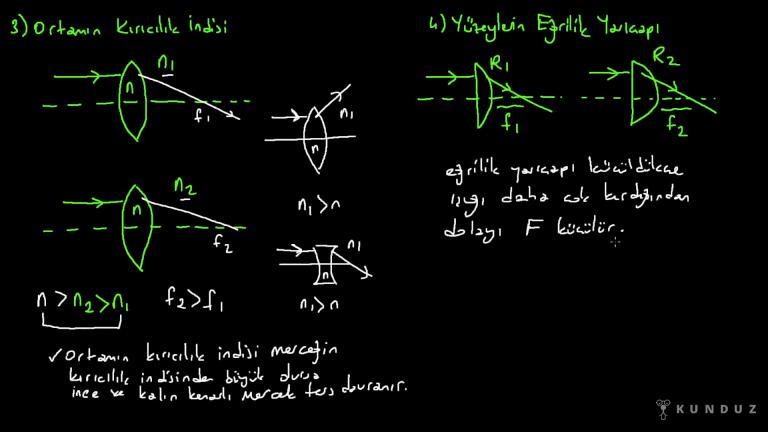 3) Ortamın Kırıcılık İndisi
n1
n
f1
n1
n
n1>n
n2
n
f2
n1
n
n1>n
n > n2 > n1
f2 > f1
✓ Ortamın kırıcılık indisi merceğin
kırıcılık indisinden büyük olursa
ince ve kalın kenarlı mercek ters davranır.
4) Yüzeylerin Eğrilik Yarıçapı
R1
f1
R2
f2
eğrilik yarıçapı küçüldükçe
ışığı daha çok kırdığından
dolayı F küçülür.
KUNDUZ